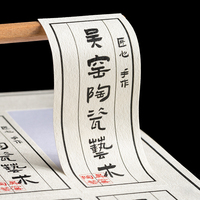 匠心 手作
吴窑陶瓷藝术